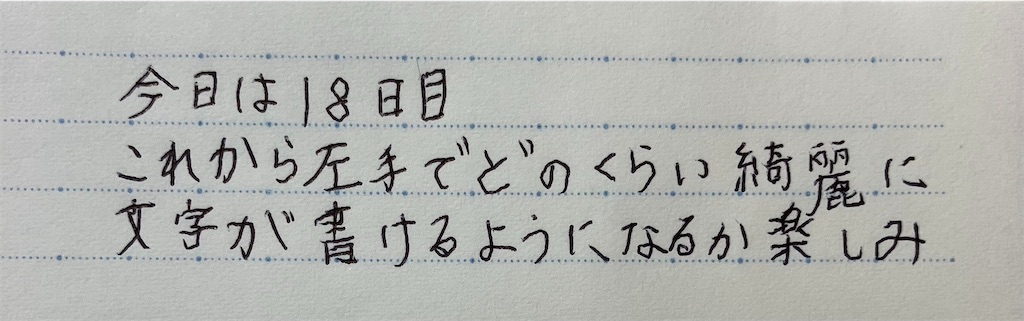 今日は18日目
これから左手でどのくらい綺麗に
文字が書けるようになるか楽しみ